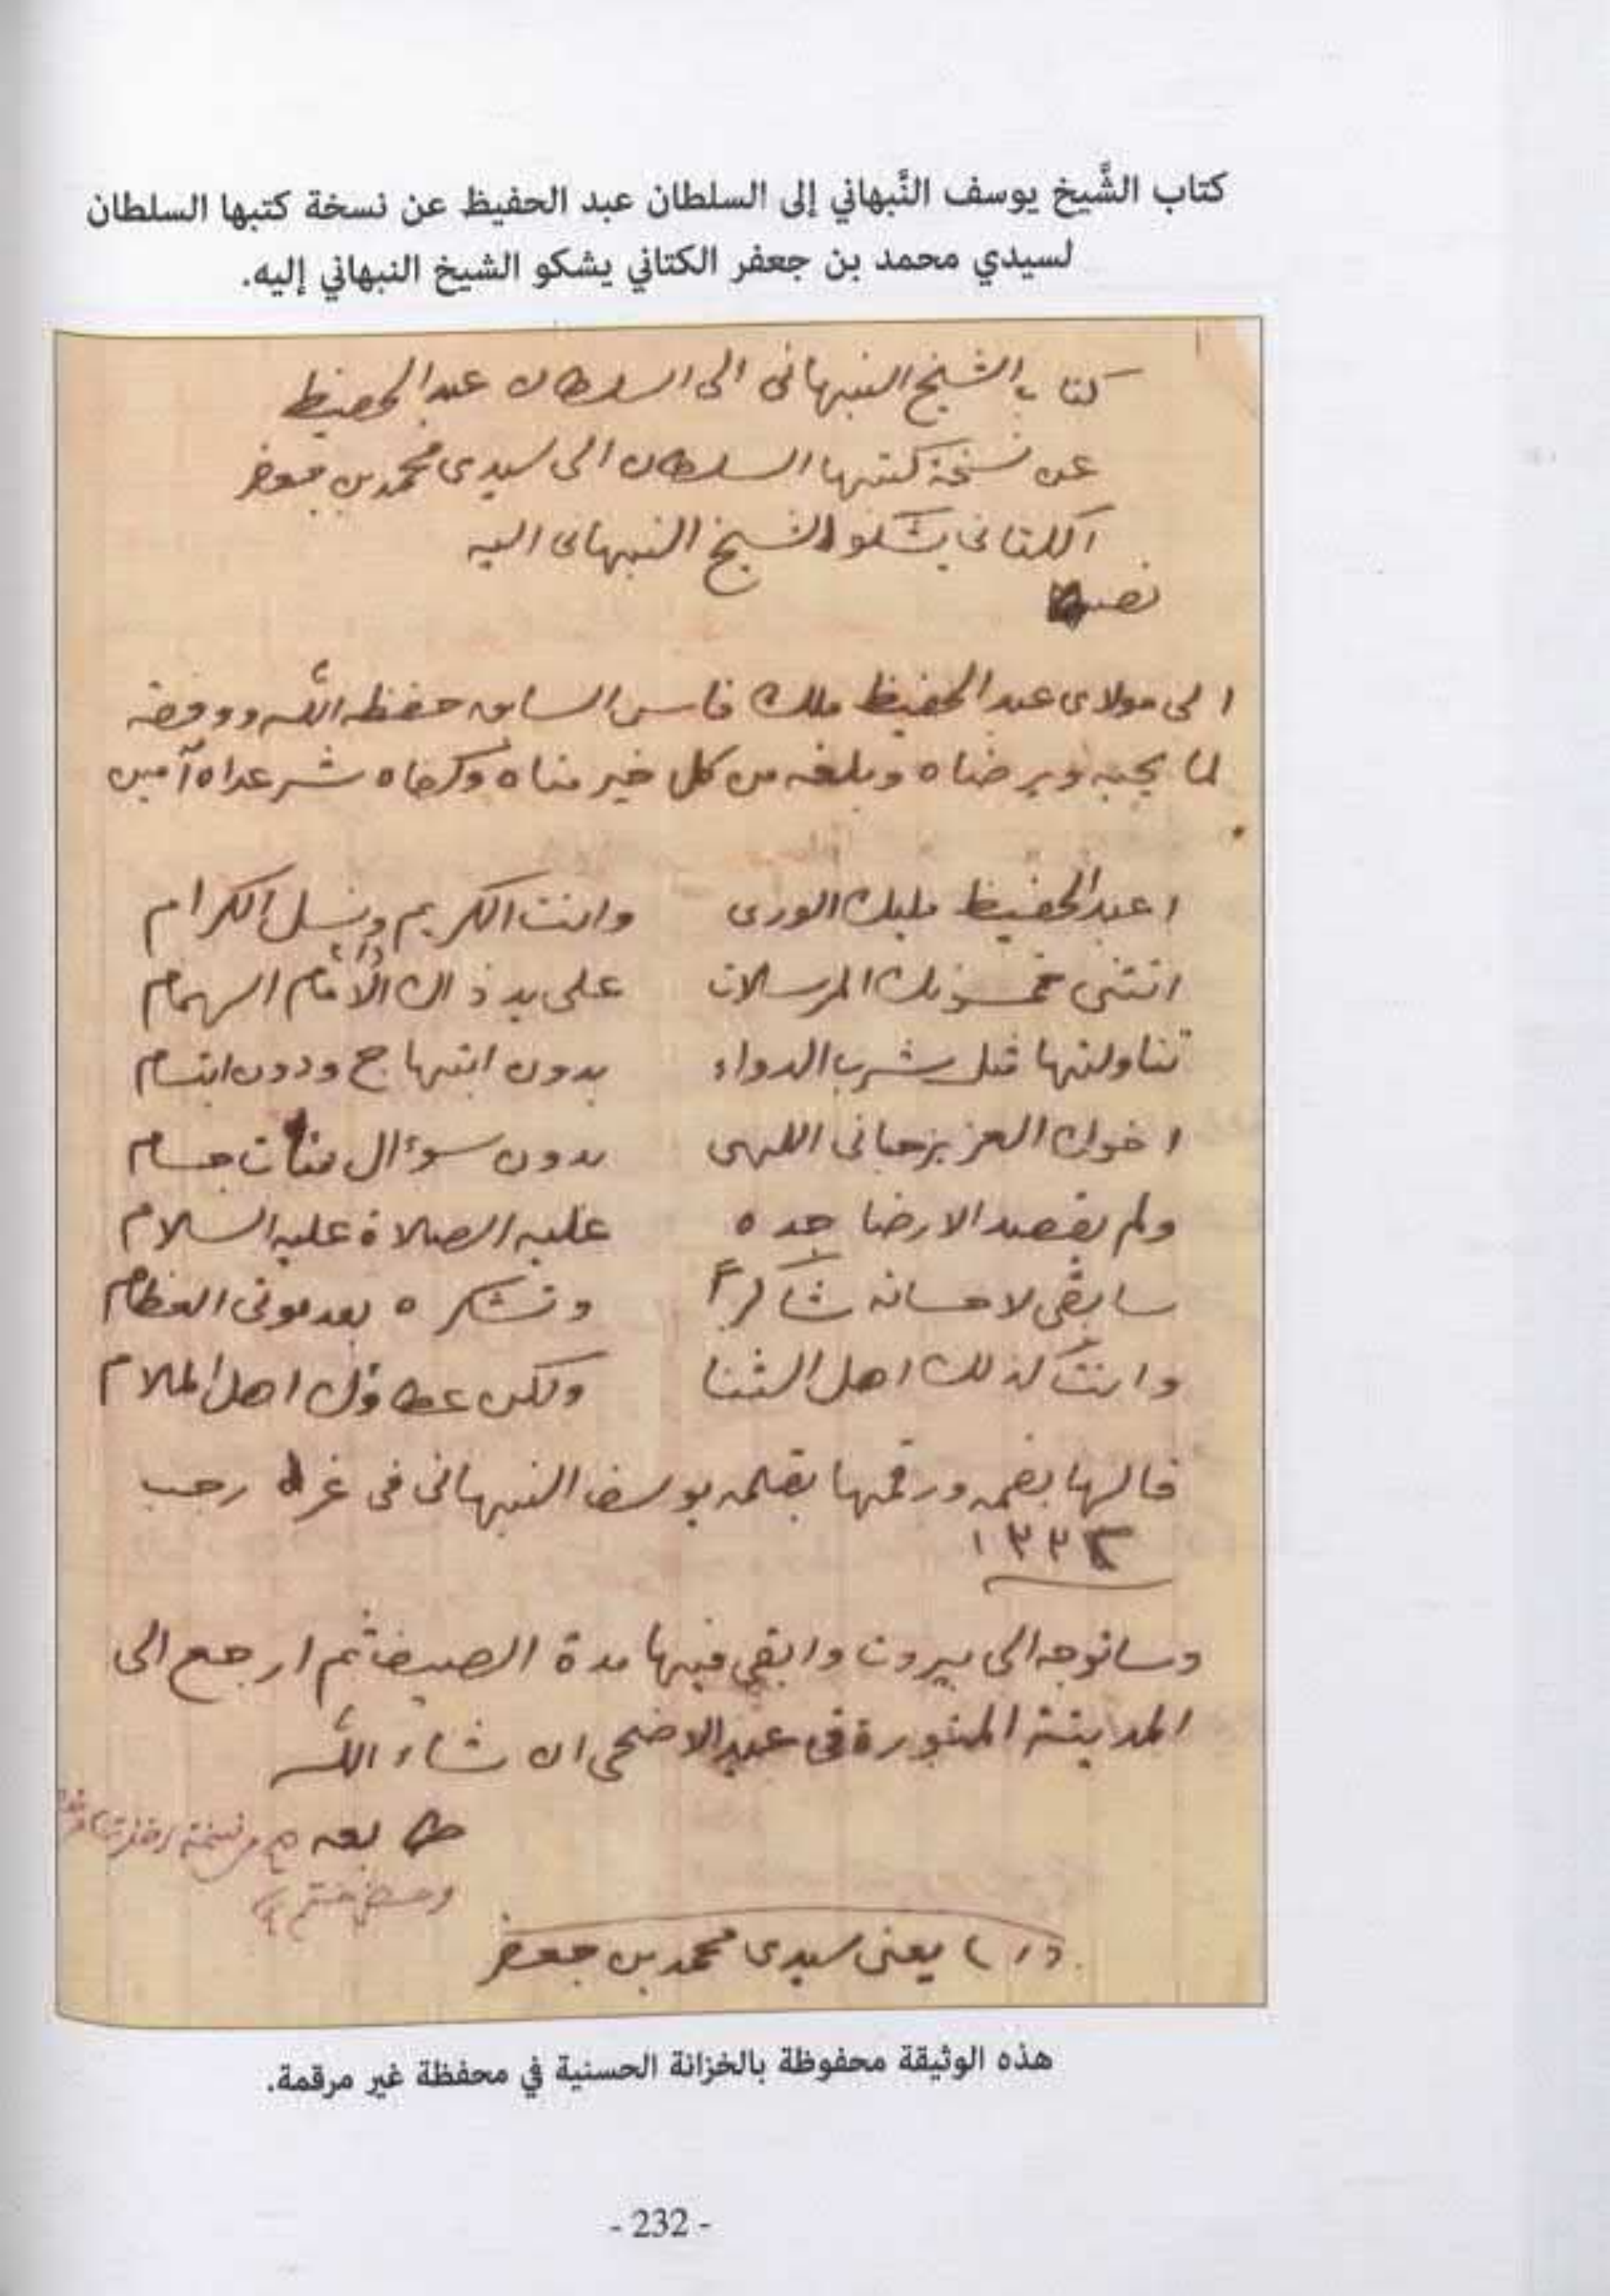 كتاب الشَّيخ يوسف النَّبهاني إلى السلطان عبد الحفيظ عن نسخة كتبها السلطان
لسيدي محمد بن جعفر الكتاني يشكو الشيخ النبهاني إليه.
كتاب الشيخ النبهانى الى السلطان عبد الحفيظ
عن نسخة كتبها السلطان الى سيدى محمد بن جعفر
الكتانى يشكو الشيخ النبهانى اليه
الى مولاى عبد الحفيظ ملك فاس السابق حفظه الله ووفقه
لما يحبه ويرضاه وبلغه من كل خير مناه وكفاه شر عداه آمين
اعبد الحفيظ مليك الورى وانت الكريم ونسل الكرام
اتتنى خمسونك المرسلات على يد ذاك (١) الامام الهمام
تناولتها مثل شرب الدواء بدون ابتهاج ودون ابتسام
اخوك العزيز حبانى اللهى بدون سوءال مئات جسام
ولم يقصد الا رضا جده عليه الصلاة عليه السلام
سابقى لاحسانه شاكراً وتشكره بعد موتى العظام
وانت كذلك اهل الثنا ولكن عطاؤك اهل الملام
قالها بفمه ورقمها بقلمه يوسف النبهانى فى غرة رجب
١٣٣٤
وساتوجه الى بيروت وابقى فيها مدة الصيف ثم ارجع الى
المدينة المنورة فى عيد الاضحى ان شاء الله
(١) يعنى سيدى محمد بن جعفر
هذه الوثيقة محفوظة بالخزانة الحسنية في محفظة غير مرقمة.
- 232 -